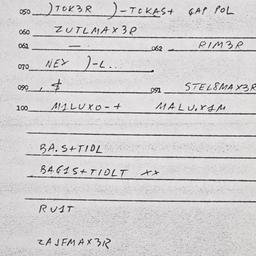 050 )TOK3R )-TOKAS+ GAP POL
060 ZUTLMAX3R
061 — 062 RIM3R
070 NEX )-L...
090 , $ 091 STEL8MAX3R
100 M1LUXO-+ MALU,X1M
BA.S+TIDL
BAG1S+TIDLT ××
RU1T
ZAJFMAX3R